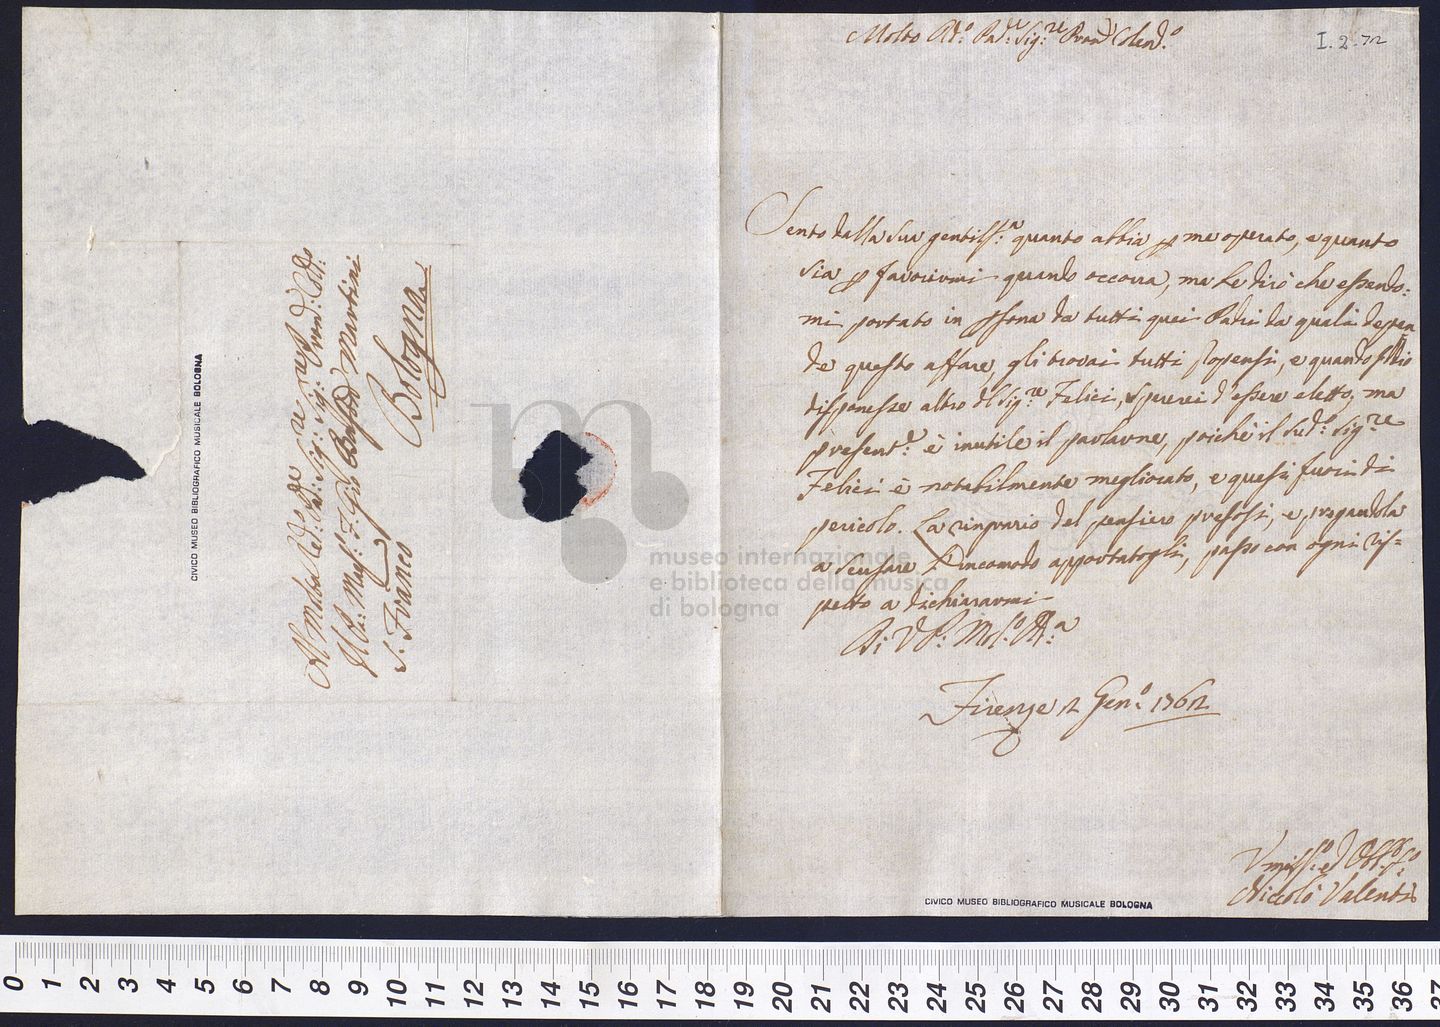 Al Molto Rev:do Pad:e Sig:r Sig:r Pron: Col:mo
Il P: Maes: F: Gio Battista Martini
S: Franco
Bologna
CIVICO MUSEO BIBLIOGRAFICO MUSICALE BOLOGNA
museo internazionale
e biblioteca della musica
di bologna
I. 2. 72
Molto Rd.o Pad.e Sig.re Pron Colend.o
Sento dalla sua gentiliss.a quanto abbia p me operato, e quanto
sia p favorirmi quando occorra, ma Le dirò che essendo:
mi portato in psona da tutti quei Padri da quali depen
de questo affare, gli trovai tutti propensi, e quando Iddio
disponesse altro del Sig.re Felici, sperei d'essere eletto, ma
present.e è inutile il parlarne, poichè il sud.o Sig.re
Felici è notabilmente megliorato, e quasi fuori di
pericolo. La ringrazio del pensiero presosi, e pregandola
a scusare L'incomodo apportatogli, passo con ogni ris=
petto a dichiararmi
Di V P: Mol.o Rd.a
Firenze 2 Gen.o 1762
Umiliss.o ed Obb.mo S.e
Niccolò Valenti
CIVICO MUSEO BIBLIOGRAFICO MUSICALE BOLOGNA
0 1 2 3 4 5 6 7 8 9 10 11 12 13 14 15 16 17 18 19 20 21 22 23 24 25 26 27 28 29 30 31 32 33 34 35 36 37